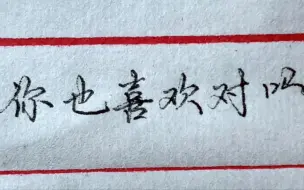 你也喜欢对吗